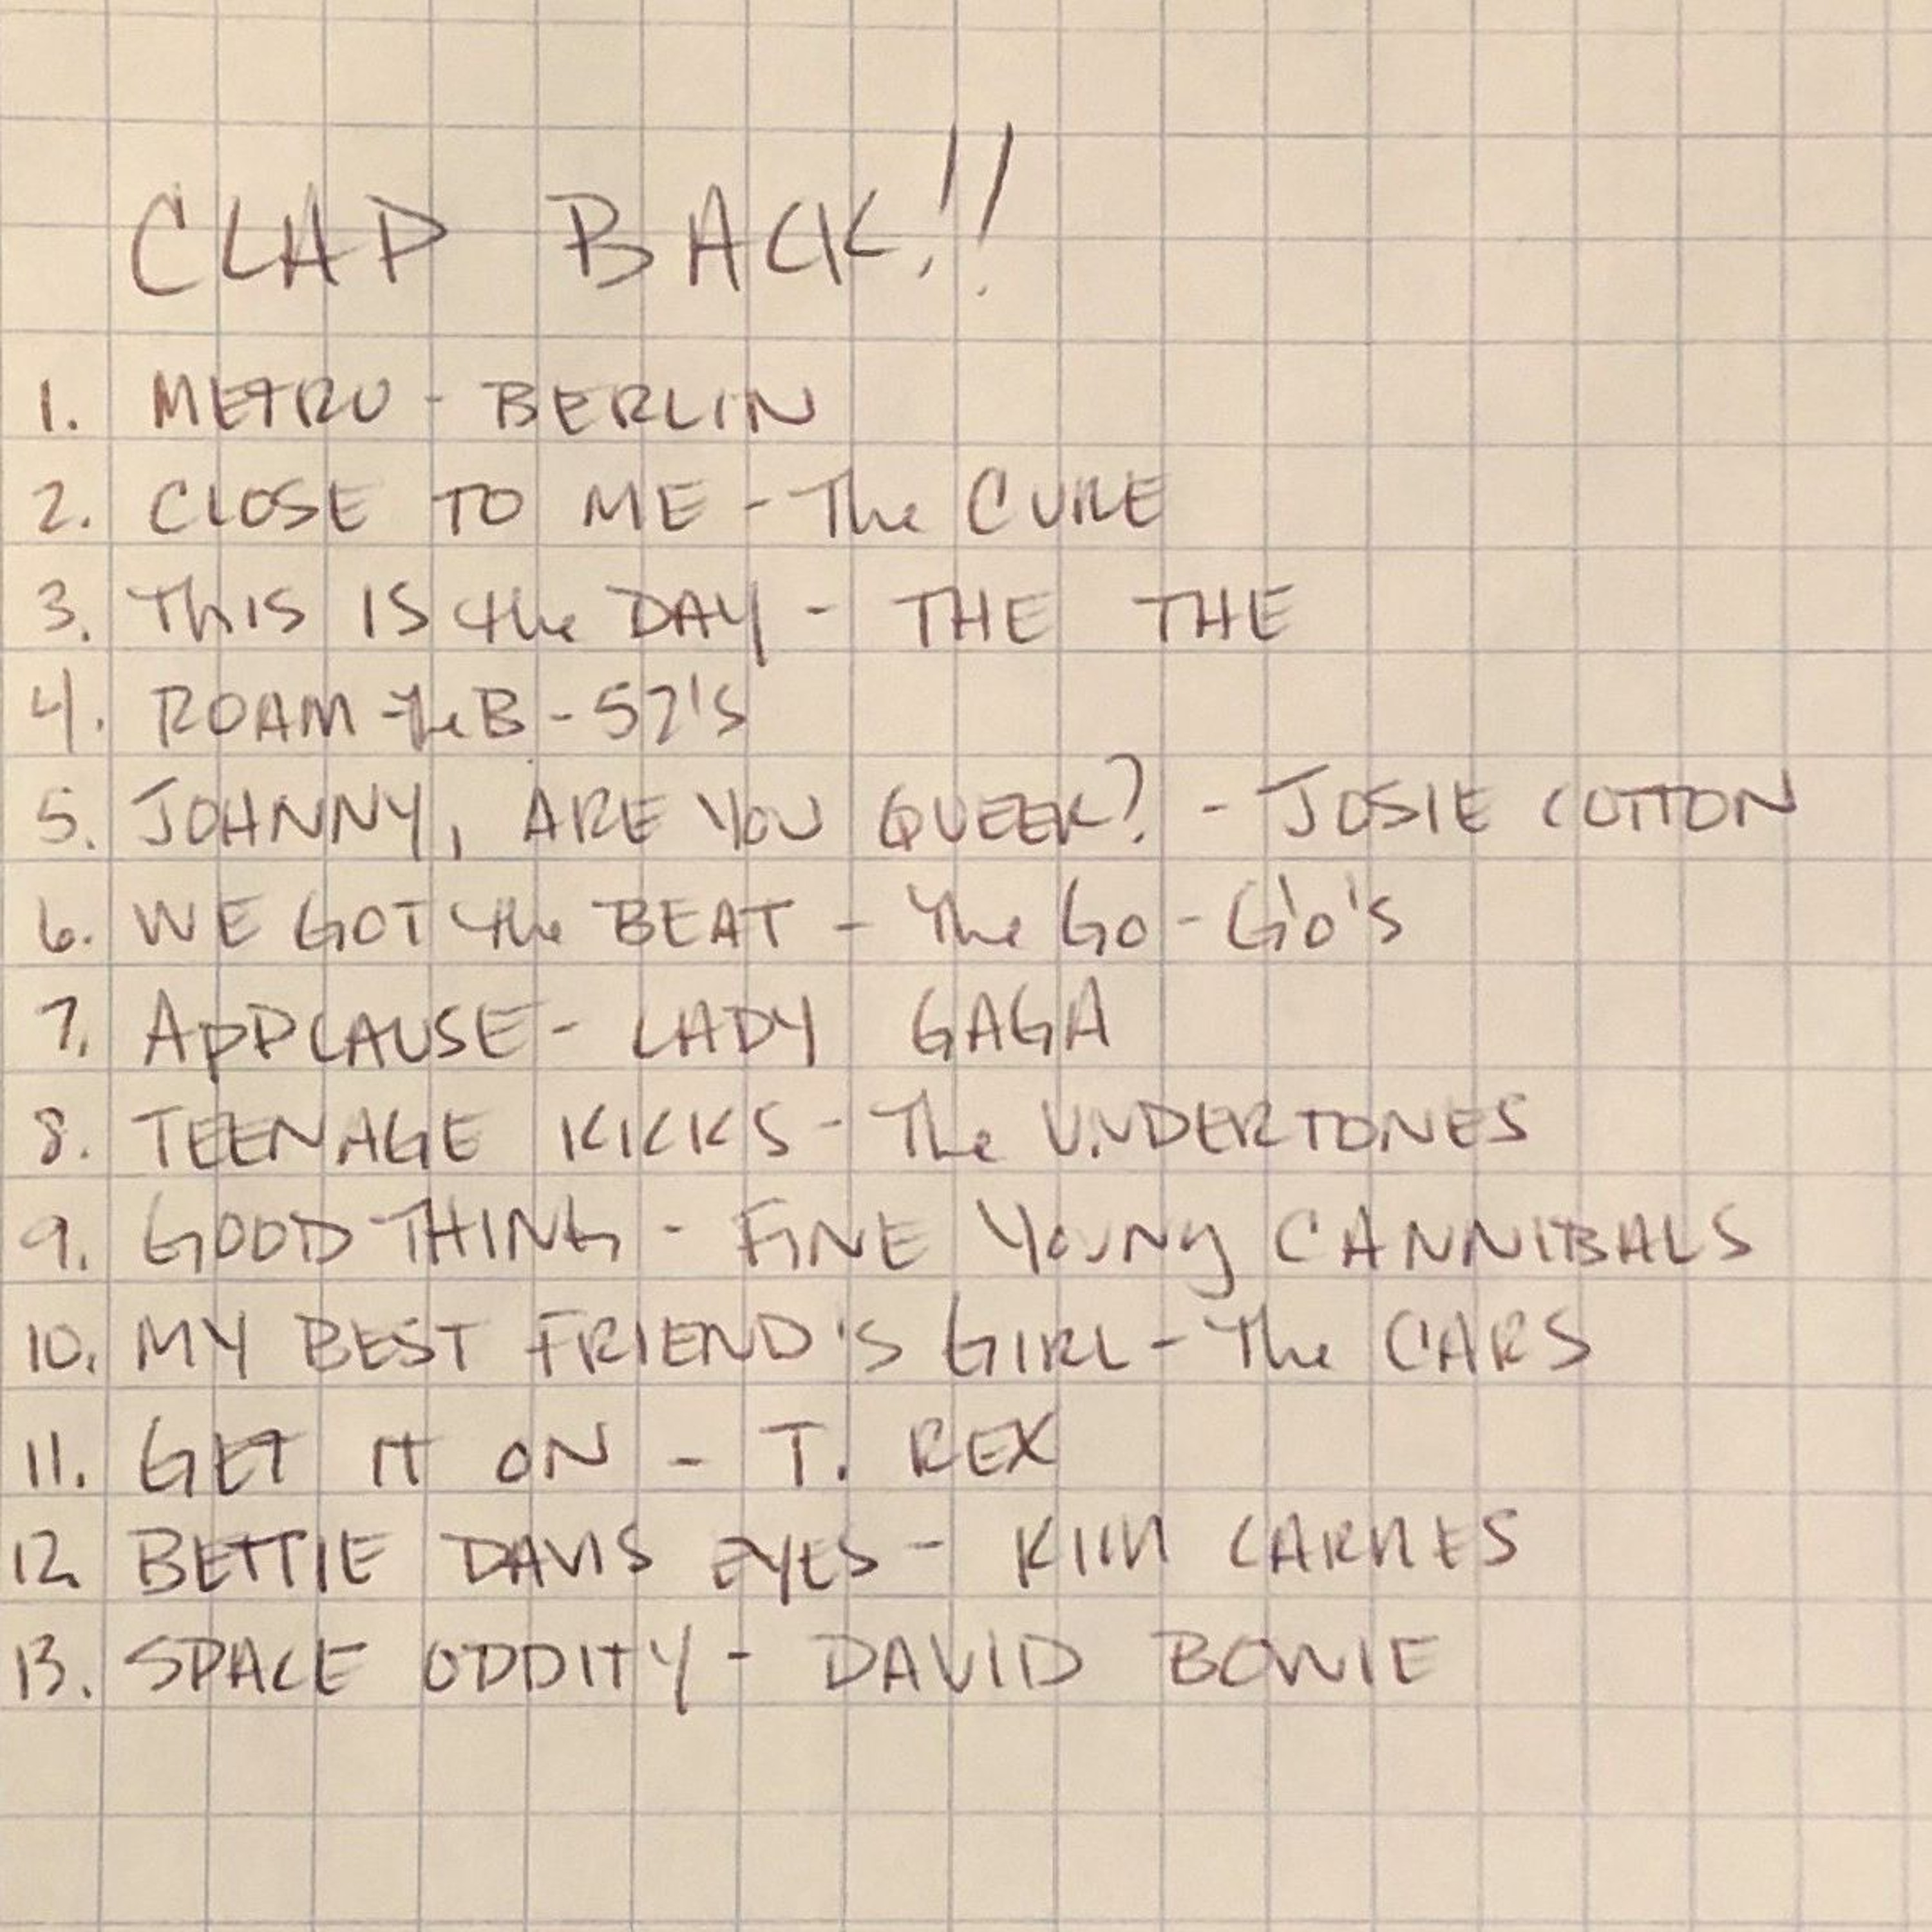 CLAP BACK!!
1. METRO - BERLIN
2. CLOSE TO ME - The CURE
3. This IS the DAY - THE THE
4. ROAM - the B-52's
5. JOHNNY, ARE YOU QUEER? - JOSIE COTTON
6. WE GOT the BEAT - The Go-Go's
7. APPLAUSE - LADY GAGA
8. TEENAGE KICKS - The UNDERTONES
9. GOOD THING - FINE YOUNG CANNIBALS
10. MY BEST FRIEND'S GIRL - The CARS
11. GET IT ON - T. REX
12. BETTIE DAVIS EYES - KIM CARNES
13. SPACE ODDITY - DAVID BOWIE